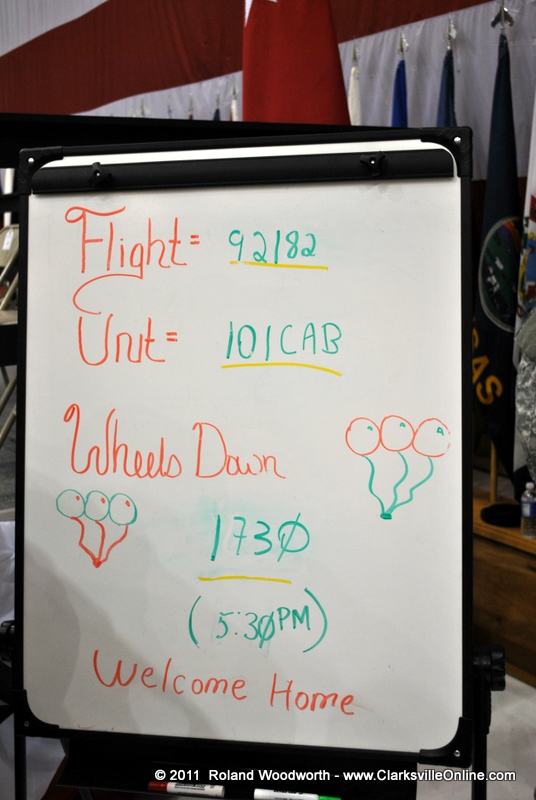 Flight = 92182
Unit = 101CAB
Wheels Down
1730
(5:30PM)
Welcome Home
SAS
© 2011 Roland Woodworth - www.ClarksvilleOnline.com